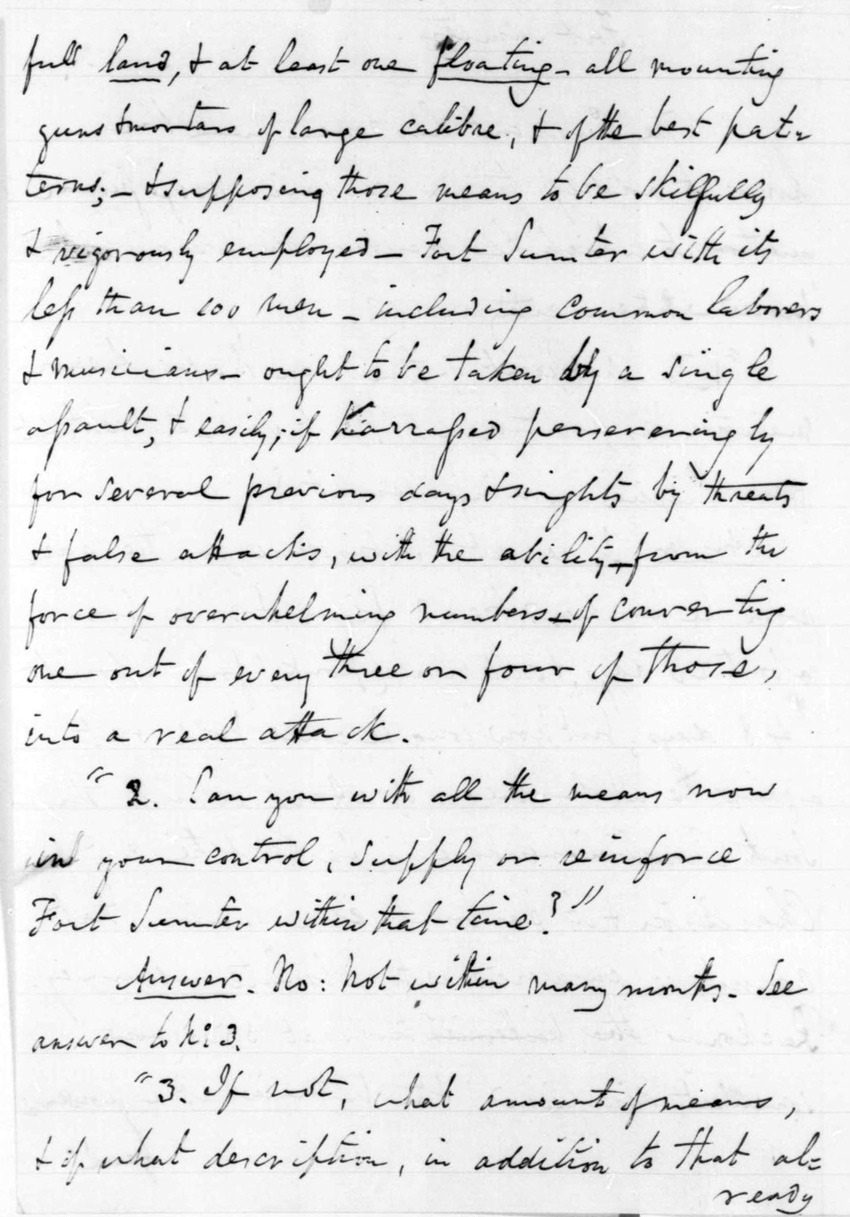 full land, & at least one floating - all mounting
guns & mortars of large calibre, & of the best pat-
terns; - & supposing those means to be skilfully
& vigorously employed - Fort Sumter with its
less than 100 men - including common laborers
& musicians - ought to be taken by a single
assault, & easily, if harrassed perseveringly
for several previous days & nights by threats
& false attacks, with the ability - from the
force of overwhelming numbers - of converting
one out of every three or four of those,
into a real attack.
"2. Can you with all the means now
in your control, supply or reinforce
Fort Sumter within that time?"
Answer. No: Not within many months. See
answer to No. 3.
"3. If not, what amount of means,
& of what description, in addition to that al=
ready